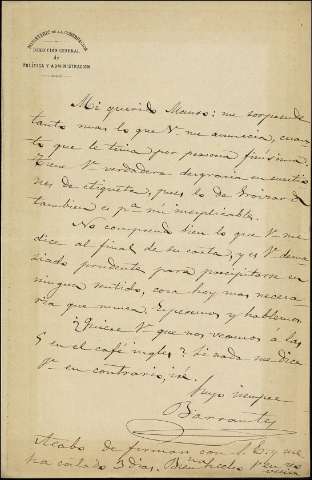 MINISTERIO DE LA GOBERNACION
DIRECCION GENERAL
de
POLÍTICA Y ADMINISTRACION
Mi querido Mauro: me sorprende
tanto mas lo que V. me anuncia, cuan
to que le tenia por persona finísima.
Tiene V. verdadera desgracia en cuestio
nes de etiqueta, pues lo de
tambien es pª mí inexplicable.
No comprendo bien lo que V. me
dice al final de su carta, y es V. dema
siado prudente para precipitarse en
ningun sentido, cosa hoy mas necesa
ria que nunca. Esperemos y hablemos.
¿Quiere V. que nos veamos a las
5 en el café ingles? Si nada me dice
Vº en contrario, iré.
Suyo siempre
Barrantes
Acabo de firmar con S. E. y me
ha colado 3 dias. Bien hecho